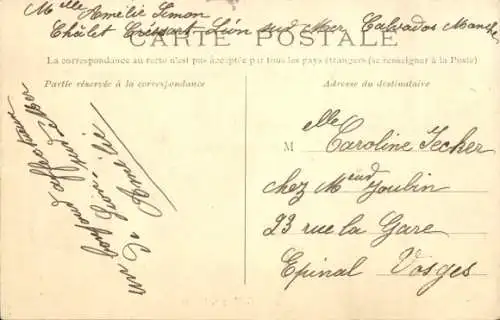 Melle Amélie Simon
Châlet Lion sur Mer Calvados Manche
CARTE POSTALE
La correspondance au recto n'est pas acceptée par tous les pays étrangers (se renseigner à la Poste)
Partie réservée à la correspondance
Adresse du destinataire
un bonjour affectueux
de Lion sur Mer
Amélie
Melle Caroline Jecher
chez Mr Joubin
23 rue la Gare
Epinal Vosges